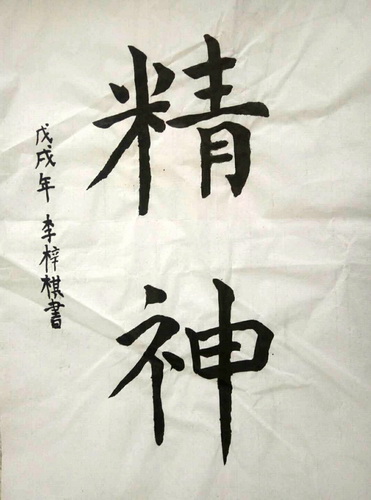 精神
戊戌年 李梓棋書